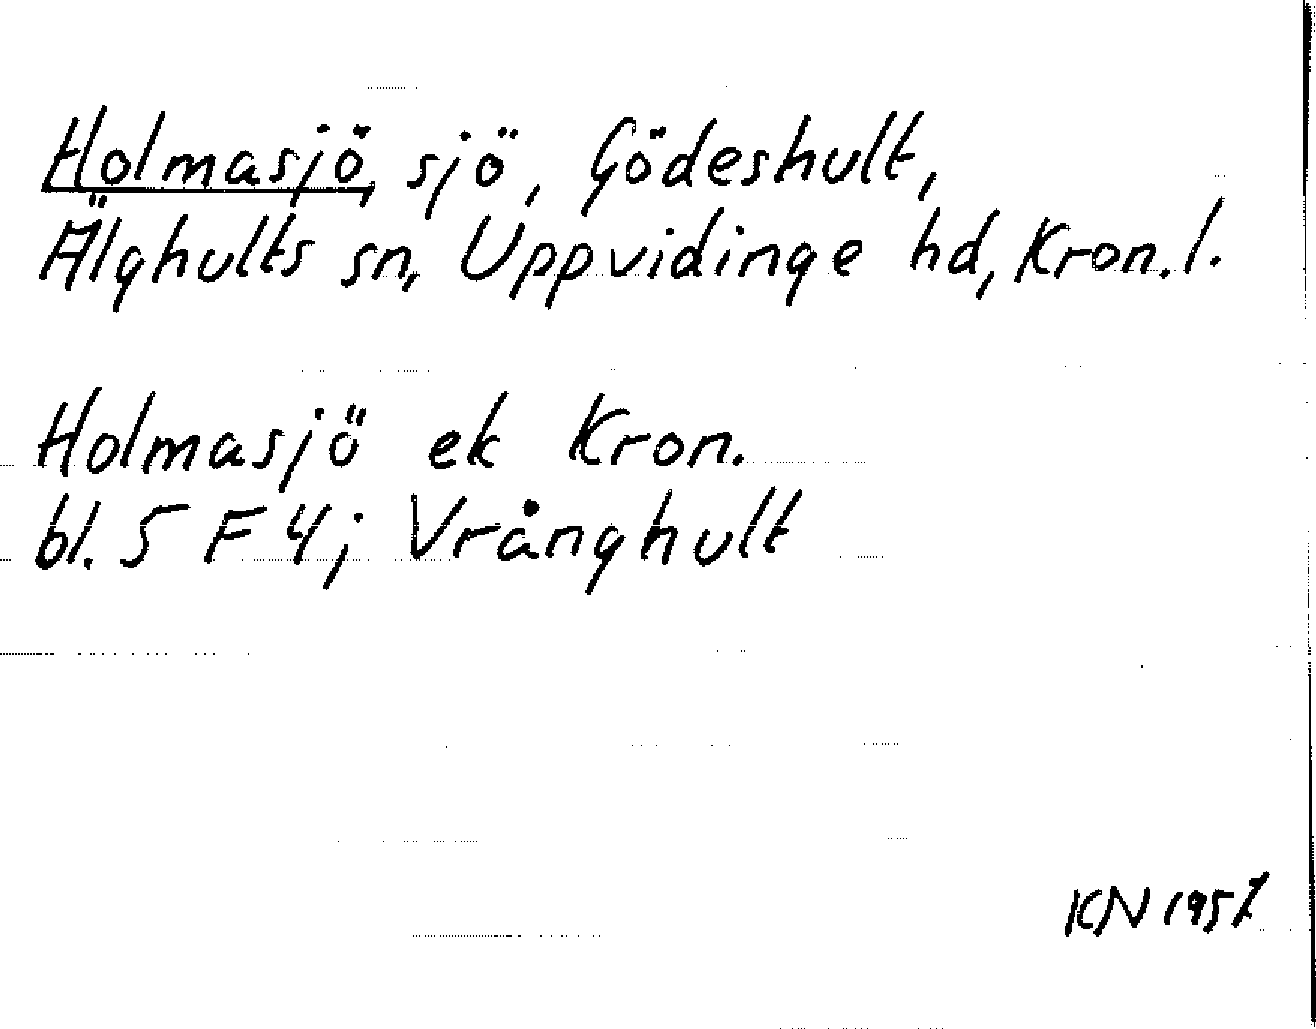 Holmasjö, sjö, Gödeshult,
Älghults sn, Uppvidinge hd, Kron. l.
Holmasjö ek Kron.
bl. 5 F 4; Vrånghult
KN 1957